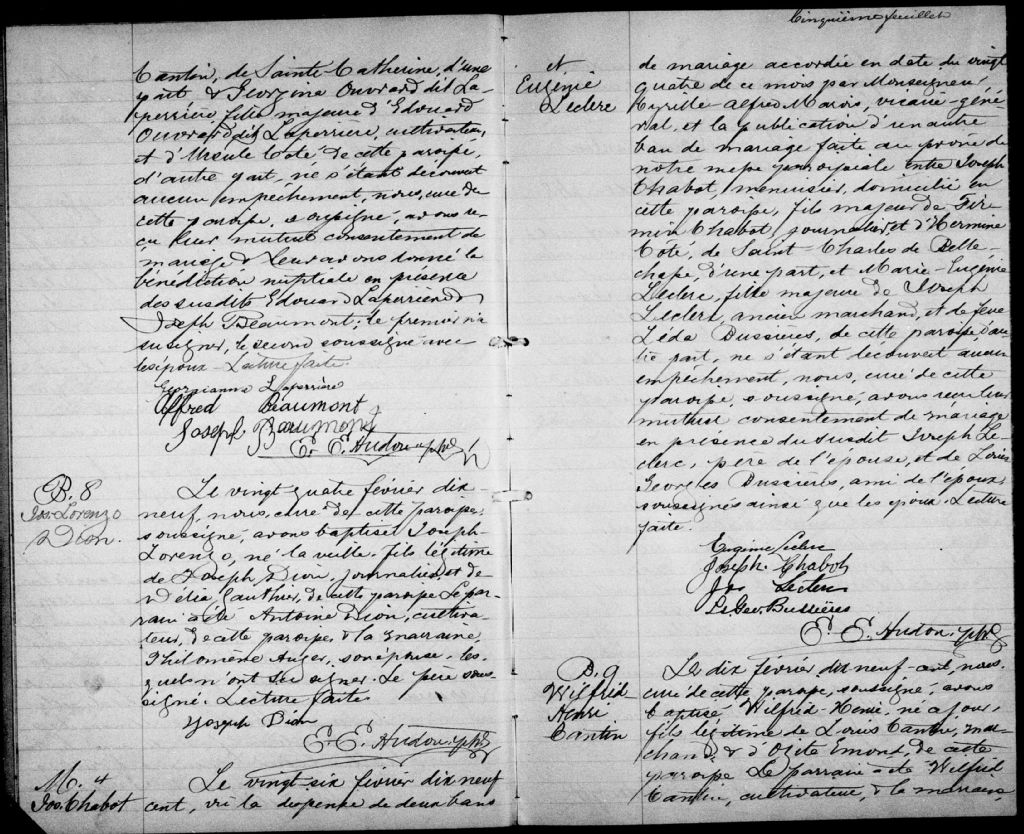 Cantin, de Sainte-Catherine, d'une
part & Georgina Ouvrard dit La-
perrière, fille majeure d'Edouard
Ouvrard dit Laperriere, cultivateur,
et d'Ursule Coté, de cette paroisse,
d'autre part, ne s'étant découvert
aucun empéchement, nous, curé de
cette paroisse, soussigné, avons re-
çu leur mutuel consentement de
mariage & leur avons donné la
bénédiction nuptiale en présence
des susdits Edouard Laperriere &
Joseph Beaumont; le premier n'a
su signer, le second soussigné avec
les époux. Lecture faite.
Georgianna Laperrière
Alfred Beaumont
Joseph Beaumont
E. E. Hudon, ptre
B. 8
Jos. Lorenzo
Dion.
Le vingt quatre février dix
neuf, nous, curé de cette paroisse,
soussigné, avons baptisé Joseph-
Lorenzo, né la veille, fils légitime
de Joseph Dion, journalier, et de
Délia Gauthier, de cette paroisse. Le par-
rain a été Antoine Dion, cultiva-
teur, de cette paroisse, & la marraine
Philomène Auger, son épouse, les-
quels n'ont su signer. Le père sous-
signé. Lecture faite.
Joseph Dion
E. E. Hudon, ptre
M. 4
Jos. Chabot
Le vingt-six février dix neuf
cent, vu la dispense de deux bans
Cinquième feuillet
et
Eugénie
Leclerc
de mariage accordée en date du vingt
quatre de ce mois par Monseigneur
Cyrille Alfred Marois, vicaire-géné
ral, et la publication d'un autre
ban de mariage faite au prône de
notre messe paroissiale entre Joseph
Chabot, menuisier, domicilié en
cette paroisse, fils majeur de Fir-
min Chabot, journalier, et d'Hermine
Coté, de Saint-Charles de Belle-
chasse, d'une part, et Marie-Eugénie
Leclerc, fille majeure de Joseph
Leclerc, ancien marchand, et de feue
Léda Bussières, de cette paroisse, d'au-
tre part, ne s'étant découvert aucun
empéchement, nous, curé de cette
paroisse, soussigné, avons reçu leur
mutuel consentement de mariage
en présence du susdit Joseph Le-
clerc, père de l'épouse, et de Louis
Georges Bussières, ami de l'époux,
soussignés ainsi que les époux. Lecture
faite.
Eugénie Leclerc
Joseph Chabot
Jos Leclerc
Ls Geo. Bussières
E. E. Hudon, ptre
B. 9
Wilfrid
Henri
Cantin
Le dix février dix neuf-cent, nous,
curé de cette paroisse, soussigné, avons
baptisé Wilfrid-Henri, né ce jour,
fils légitime de Louis Cantin, mar-
chand, & d'Ozite Emond, de cette
paroisse. Le parrain a été Wilfrid
Cantin, cultivateur, & la marraine,